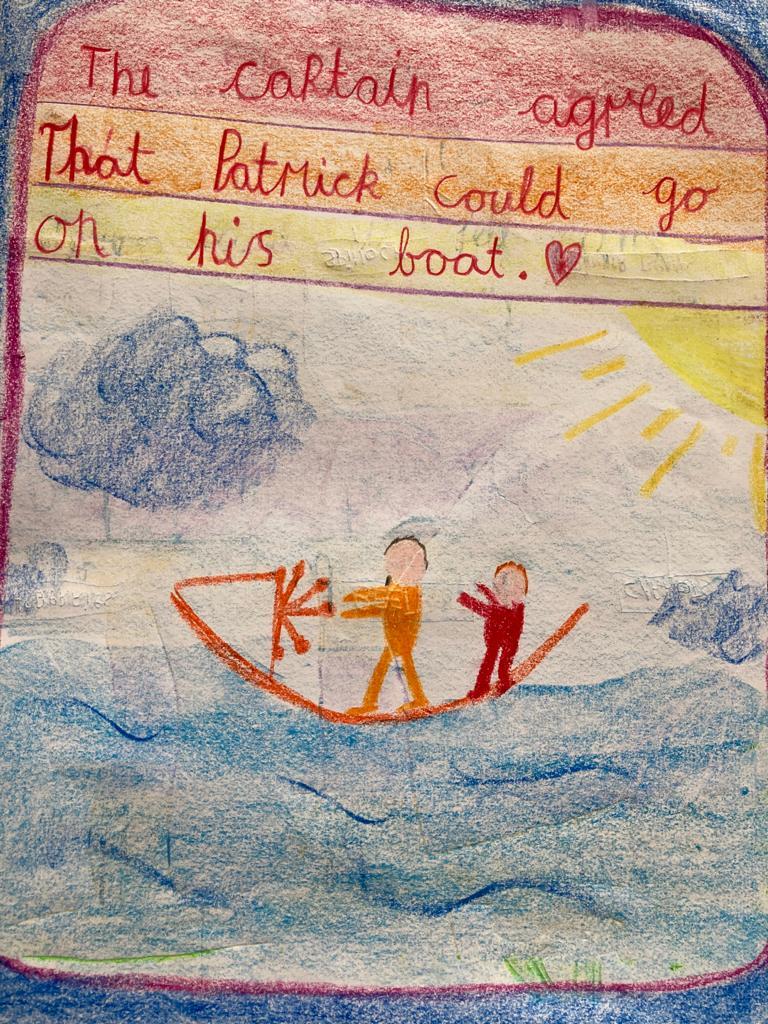 The captain agreed
That Patrick could go
on his boat.